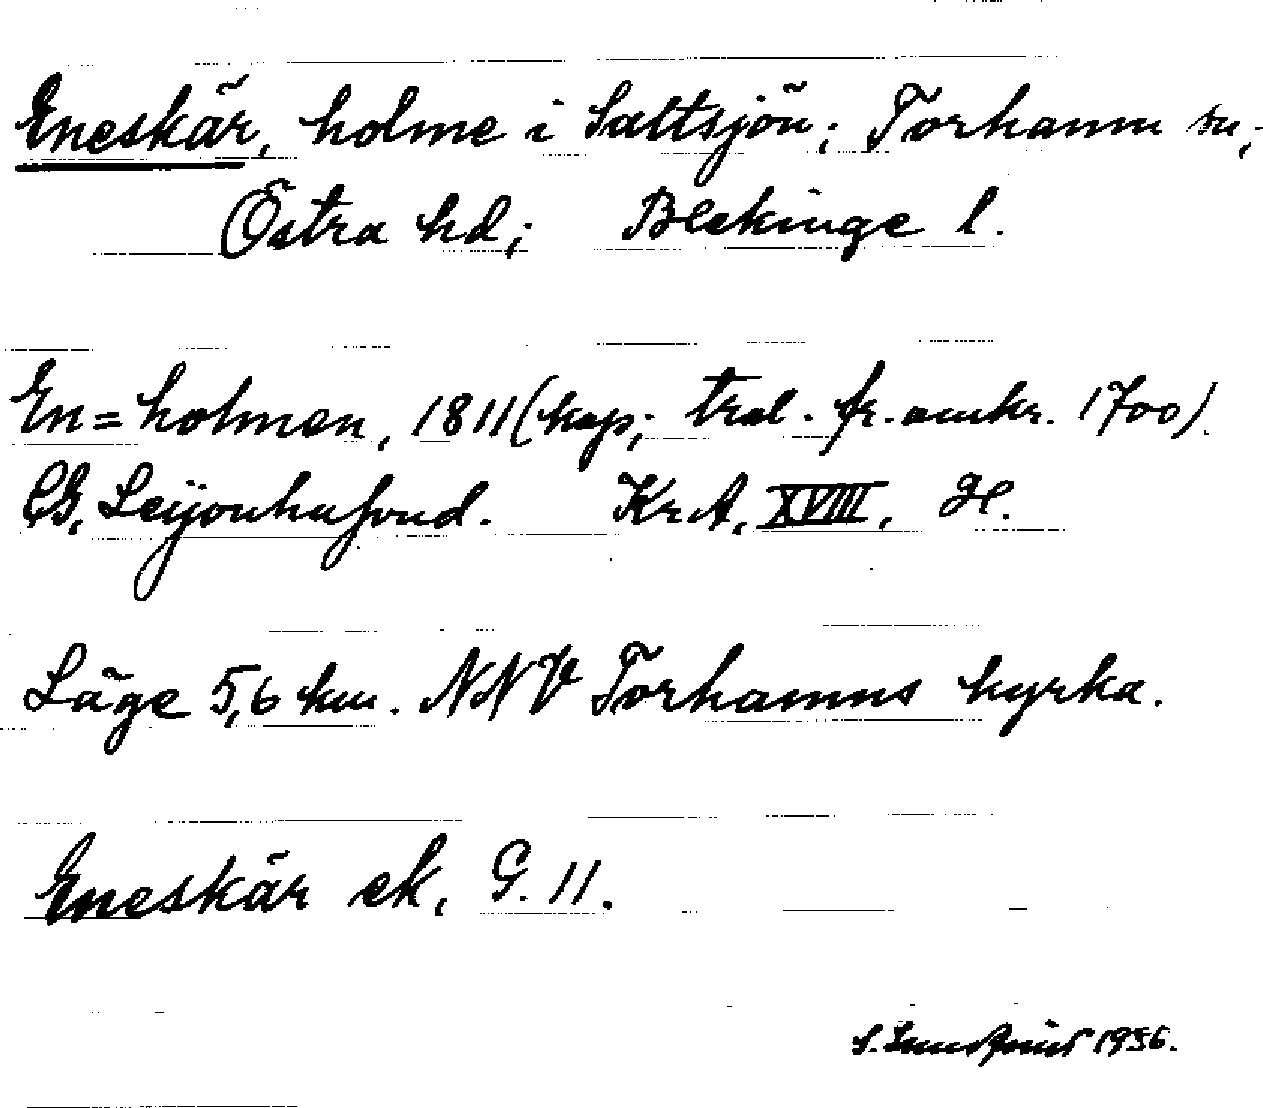 Eneskär, holme i Saltsjön; Torhamn sn;
Östra hd; Blekinge l.
En=holmen, 1811 (kop; trol. fr. omkr. 1700).
CG, Leijonhufvud. KrA, XVIII, H.
Läge 5,6 km. NNV Torhamns kyrka.
Eneskär ek, G. 11.
1956.